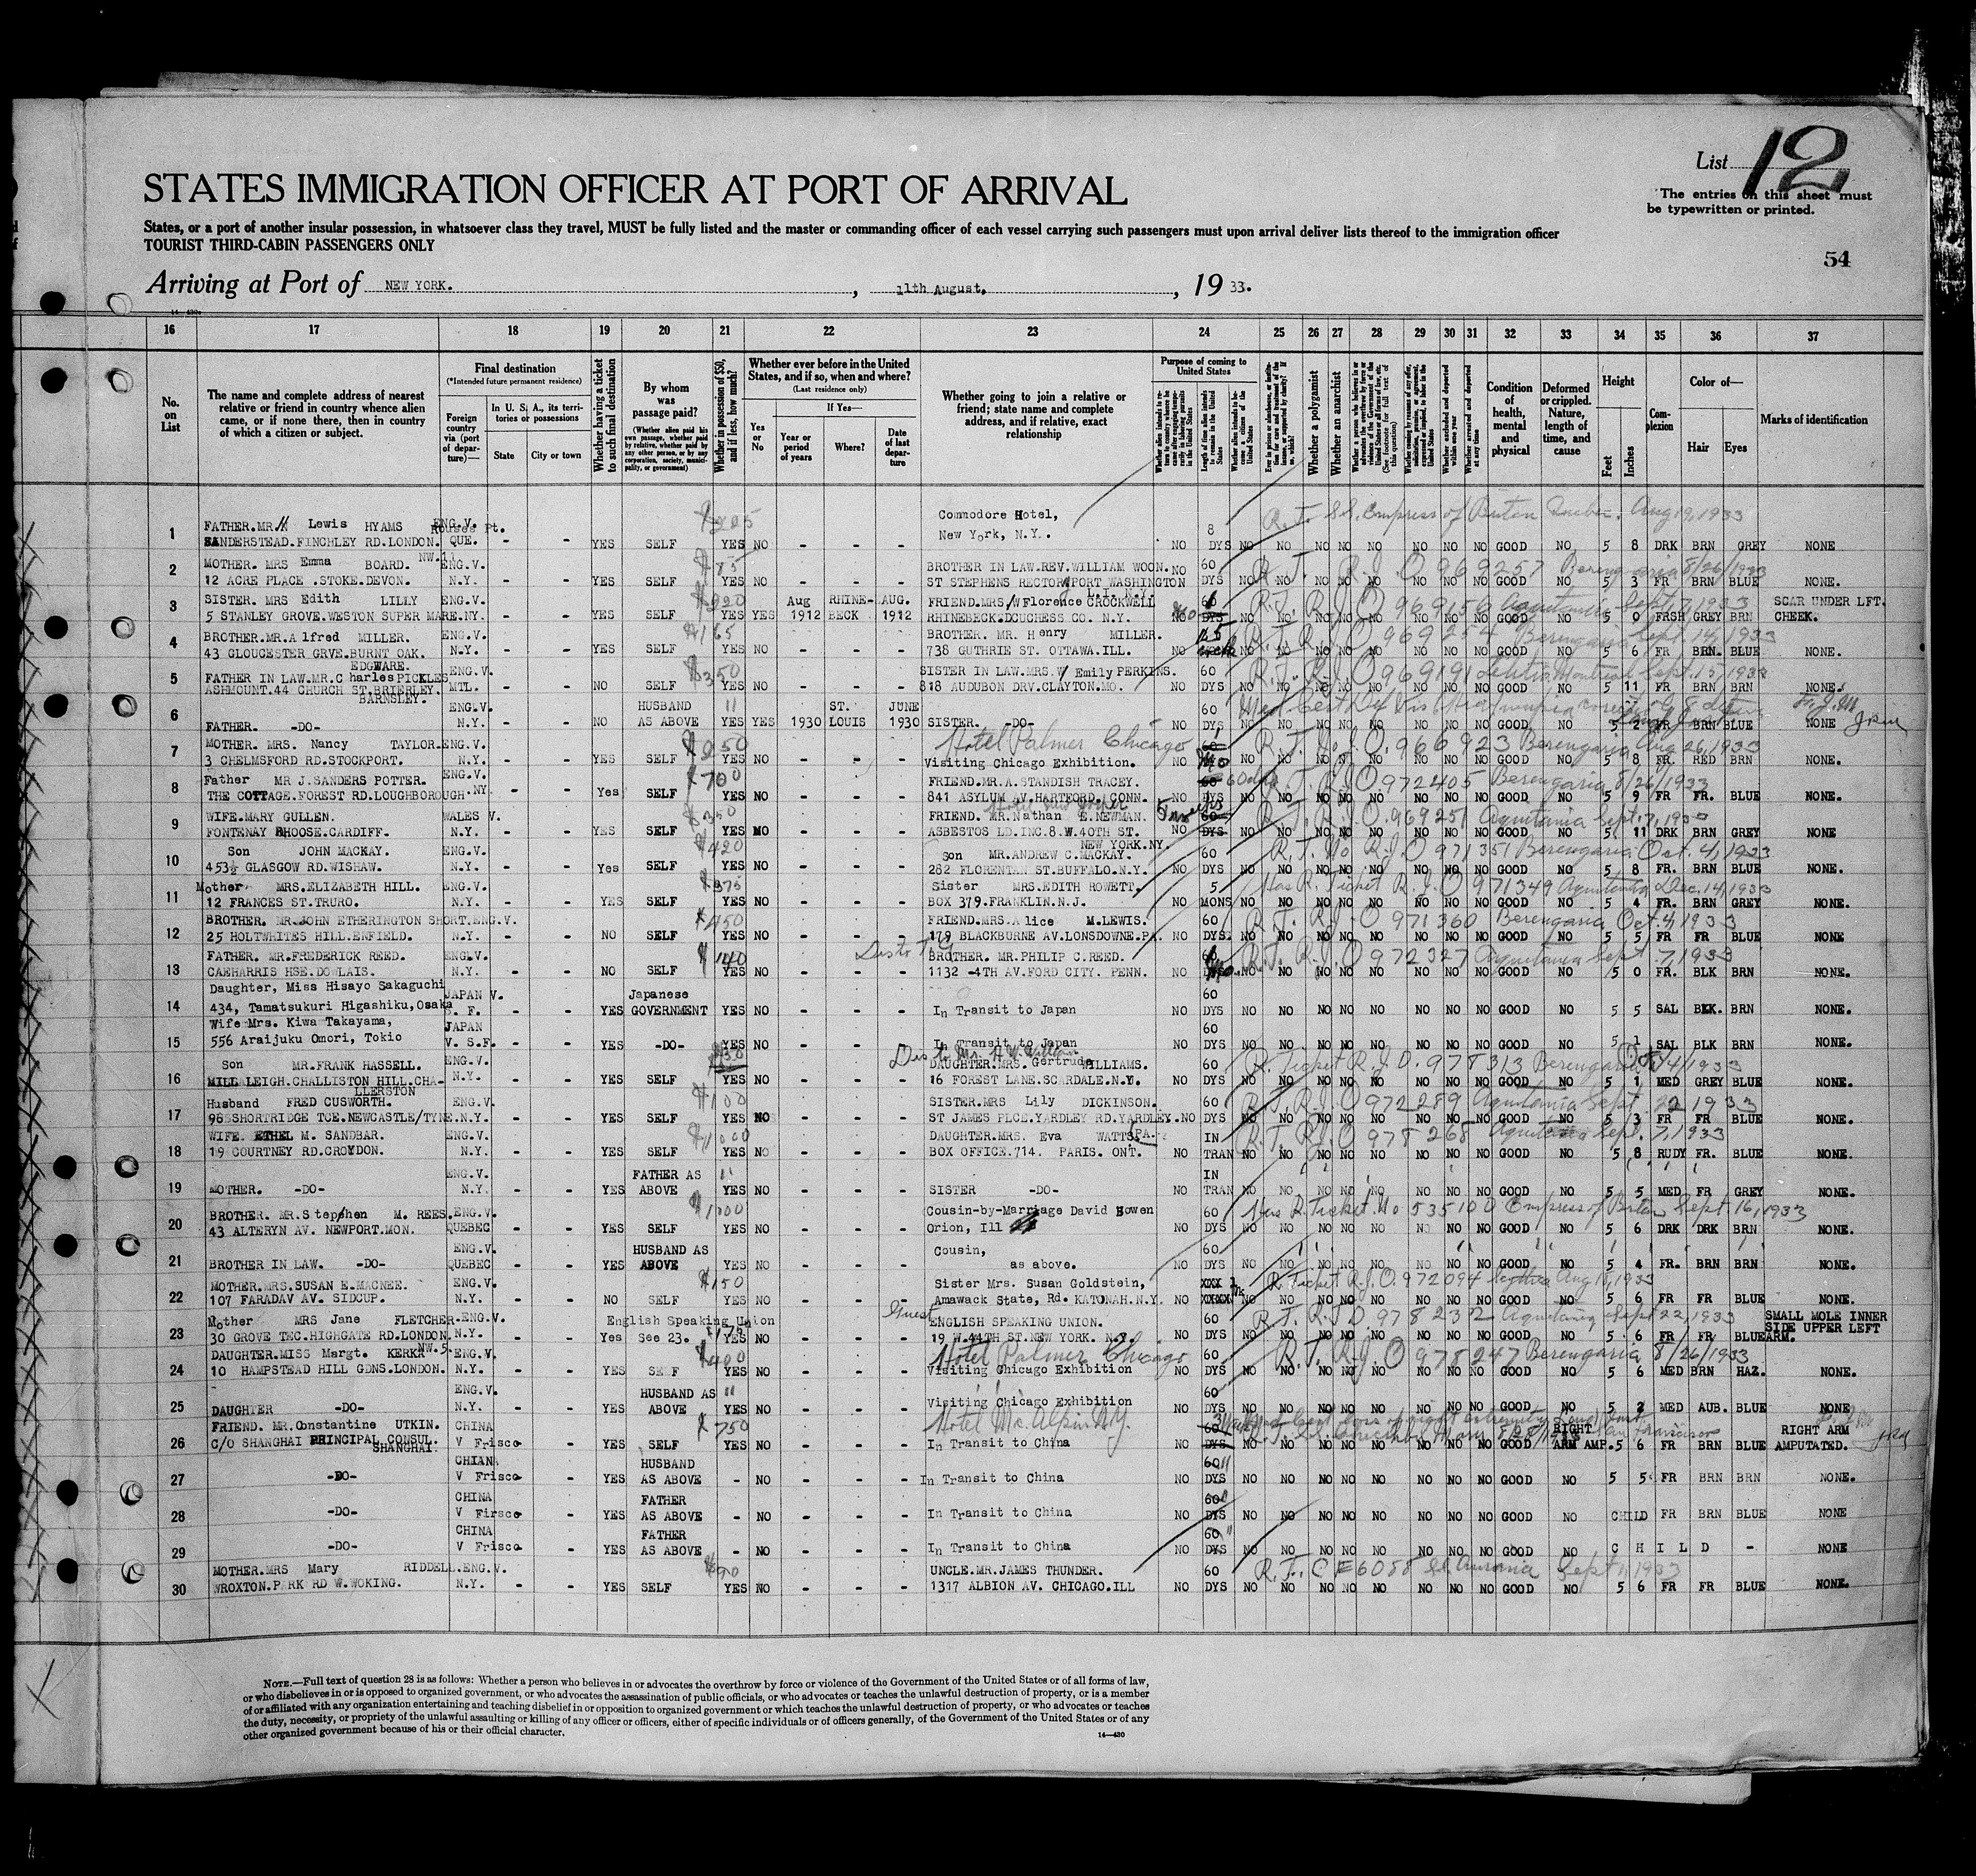 List 12
STATES IMMIGRATION OFFICER AT PORT OF ARRIVAL
The entries on this sheet must
be typewritten or printed.
States, or a port of another insular possession, in whatsoever class they travel, MUST be fully listed and the master or commanding officer of each vessel carrying such passengers must upon arrival deliver lists thereof to the immigration officer
TOURIST THIRD-CABIN PASSENGERS ONLY
54
Arriving at Port of NEW YORK. , 11th August, , 19 33.
16 17 18 19 20 21 22 23 24 25 26 27 28 29 30 31 32 33 34 35 36 37
No. on List
The name and complete address of nearest relative or friend in country whence alien came, or if none there, then in country of which a citizen or subject.
Final destination
(*Intended future permanent residence)
Foreign country via (port of departure)—
In U. S. A., its territories or possessions
State City or town
Whether having a ticket to such final destination
By whom was passage paid?
(Whether alien paid his own passage, whether paid by relative, whether paid by any other person, or by any corporation, society, municipality, or government)
Whether in possession of $50, and if less, how much?
Whether ever before in the United States, and if so, when and where?
(Last residence only)
Yes or No
If Yes—
Year or period of years Where? Date of last departure
Whether going to join a relative or friend; state name and complete address, and if relative, exact relationship
Purpose of coming to United States
Length of time alien intends to remain in the United States
Whether a polygamist
Whether an anarchist
Condition of health, mental and physical
Deformed or crippled. Nature, length of time, and cause
Height
Feet Inches
Complexion
Color of—
Hair Eyes
Marks of identification
1 FATHER.MR. Lewis HYAMS ENG.V. Rouses Pt. $205 Commodore Hotel, 8 R.T. SS. Empress of Britain Quebec. Aug 19, 1933
SANDERSTEAD.FINCHLEY RD.LONDON. QUE. - - YES SELF YES NO - - - New York, N.Y.. NO DYS NO NO NO NO NO NO NO NO GOOD NO 5 8 DRK BRN GREY NONE
NW.11.
2 MOTHER. MRS Emma BOARD. ENG.V. $85 BROTHER IN LAW.REV.WILLIAM WOON. 60 R.T. R.J.O 969257 Berengaria 8/26/1933
12 ACRE PLACE .STOKE.DEVON. N.Y. - - YES SELF YES NO - - - ST STEPHENS RECTORY PORT WASHINGTON NO DYS NO NO NO NO NO NO NO NO GOOD NO 5 3 FR BRN BLUE NONE.
L.I. N.Y.
3 SISTER. MRS Edith LILLY ENG.V. Aug RHINE- AUG. FRIEND.MRS. Florence CROCKWELL R.T. R.J.O 969156 Aquitania Sept 7, 1933 SCAR UNDER LFT.
5 STANLEY GROVE.WESTON SUPER MARE.NY. - - YES SELF YES YES 1912 BECK 1912 RHINEBECK.DCUCHESS CO. N.Y. NO DYS NO NO NO NO NO NO NO NO GOOD NO 5 0 FRSH GREY BRN CHEEK.
4 BROTHER.MR.Alfred MILLER. ENG.V. $165 BROTHER. MR. Henry MILLER. R.T. R.J.O 969254 Berengaria Sept 14, 1933
43 GLOUCESTER GRVE.BURNT OAK. N.Y. - - YES SELF YES NO - - - 738 GUTHRIE ST. OTTAWA.ILL. NO NO NO NO NO NO NO NO NO GOOD NO 5 6 FR BRN BLUE NONE.
EDGWARE.
5 FATHER IN LAW.MR.Charles PICKLES ENG.V. $350 SISTER IN LAW.MRS. Emily PERKINS. 60 R.T. R.J.O 969191 Letitia Montreal Sept. 15, 1933
ASHMOUNT.44 CHURCH ST.BRIERLEY. MTL. - - NO SELF YES NO - - - 818 AUDUBON DRV.CLAYTON.MO. NO DYS NO NO NO NO NO NO NO NO GOOD NO 5 11 FR BRN BRN NONE.
BARNSLEY.
6 ENG.V. HUSBAND " ST. JUNE 60 Med Cert
FATHER. -DO- N.Y. - - NO AS ABOVE YES YES 1930 LOUIS 1930 SISTER. -DO- NO DYS NO NO NO NO NO NO NO NO GOOD NO 5 2 FR BRN BLUE NONE
7 MOTHER. MRS. Nancy TAYLOR. ENG.V. $250 Hotel Palmer Chicago R.T. No R.J.O. 966923 Berengaria Aug 26, 1933
3 CHELMSFORD RD.STOCKPORT. N.Y. - - YES SELF YES NO - - - Visiting Chicago Exhibition. NO NO NO NO NO NO NO NO NO GOOD NO 5 8 FR. RED BRN NONE.
8 Father MR J.SANDERS POTTER. ENG.V. $700 FRIEND.MR.A.STANDISH TRACEY. 60 days R.T. R.J.O 972405 Berengaria 8/26/1933
THE COTTAGE.FOREST RD.LOUGHBOROUGH. NY. - - Yes SELF YES NO - - - 841 ASYLUM AV.HARTFORD.CONN. NO DYS NO NO NO NO NO NO NO NO GOOD NO 5 9 FR FR. BLUE NONE.
9 WIFE.MARY GULLEN. WALES V. $350 FRIEND. MR.Nathan E.NEWMAN. 60 R.T. R.J.O. 969251 Aquitania Sept. 7, 1933
FONTENAY RHOOSE.CARDIFF. N.Y. - - YES SELF YES NO - - - ASBESTOS LD.INC.8.W.40TH ST. NO DYS NO NO NO NO NO NO NO NO GOOD NO 5 11 DRK BRN GREY NONE
NEW YORK.NY.
10 Son JOHN MACKAY. ENG.V. $420 Son MR.ANDREW C.MACKAY. 60 R.T. No R.J.O 971351 Berengaria Oct. 4, 1933
453½ GLASGOW RD.WISHAW. N.Y. - - Yes SELF YES NO - - - 282 FLORENTAN ST.BUFFALO.N.Y. NO DYS NO NO NO NO NO NO NO NO GOOD NO 5 8 FR. BRN BLUE NONE.
11 Mother MRS.ELIZABETH HILL. ENG.V. $375 Sister MRS.EDITH ROWETT. 5 Has R. Ticket R.J.O 971349 Aquitania Dec. 14, 1933
12 FRANCES ST.TRURO. N.Y. - - YES SELF YES NO - - - BOX 379.FRANKLIN.N.J. NO MONS NO NO NO NO NO NO NO NO GOOD NO 5 4 FR. BRN GREY NONE.
12 BROTHER. MR.JOHN ETHERINGTON SHORT.ENG.V. $450 FRIEND.MRS.Alice M.LEWIS. 60 R.T. R.J.O 971360 Berengaria Oct. 4, 1933
25 HOLTWHITES HILL.ENFIELD. N.Y. - - NO SELF YES NO - - - 179 BLACKBURNE AV.LONSDOWNE.PA. NO DYS. NO NO NO NO NO NO NO NO GOOD NO 5 5 FR FR BLUE NONE
13 FATHER. MR.FREDERICK REED. ENG.V. $140 BROTHER. MR.PHILIP C.REED. R.T. R.J.O 972327 Aquitania Sept. 7, 1933
CAEHARRIS HSE.DOWLAIS. N.Y. - - NO SELF YES NO - - - 1132 -4TH AV.FORD CITY. PENN. NO NO NO NO NO NO NO NO NO GOOD NO 5 0 FR. BLK BRN NONE.
14 Daughter, Miss Hisayo Sakaguchi JAPAN V. Japanese 60
434, Tamatsukuri Higashiku,Osaka S. F. - - YES GOVERNMENT YES NO - - - In Transit to Japan DYS NO NO NO NO NO NO NO NO GOOD NO 5 5 SAL BLK. BRN NONE.
15 Wife Mrs. Kiwa Takayama, JAPAN 60
556 Araijuku Omori, Tokio V. S.F. - - YES -DO- YES NO - - - In Transit to Japan DYS NO NO NO NO NO NO NO NO GOOD NO 5 1 SAL BLK BRN NONE.
16 Son MR.FRANK HASSELL. ENG.V. DAUGHTER.MRS. Gertrude WILLIAMS. 60 R. Ticket R.J.O. 978313 Berengaria Oct 4/1933
MILL LEIGH.CHALLISTON HILL.CHA- N.Y. - - YES SELF YES NO - - - 16 FOREST LANE.SCARDALE.N.Y. NO DYS NO NO NO NO NO NO NO NO GOOD NO 5 1 MED GREY BLUE NONE.
LLERSTON
17 Husband FRED CUSWORTH. ENG.V. $100 SISTER.MRS Lily DICKINSON. 60 R.T. R.J.O 972289 Aquitania Sept 22 1933
96 SHORTRIDGE TCE.NEWCASTLE/TYNE.N.Y. - - YES SELF YES NO - - - ST JAMES PLCE.YARDLEY RD.YARDLEY. NO DYS NO NO NO NO NO NO NO NO GOOD NO 5 3 FR FR BLUE NONE.
PA.
18 WIFE. ETHEL M. SANDBAR. ENG.V. $1000 DAUGHTER.MRS. Eva WATTS. IN R.T. R.J.O 978268 Aquitania Sept. 7, 1933
19 COURTNEY RD.CROYDON. N.Y. - - YES SELF YES NO - - - BOX OFFICE.714. PARIS. ONT. NO TRAN NO NO NO NO NO NO NO NO GOOD NO 5 8 RUDY FR. BLUE NONE.
19 ENG.V. FATHER AS " IN
MOTHER. -DO- N.Y. - - YES ABOVE YES NO - - - SISTER -DO- NO TRAN NO NO NO NO NO NO NO NO GOOD NO 5 5 MED FR GREY NONE.
20 BROTHER. MR.Stephen M. REES. ENG.V. $1000 Cousin-by-Marriage David Bowen 60 Has R. Ticket No 535100 Empress of Britain Sept 16, 1933
43 ALTERYN AV. NEWPORT.MON. QUEBEC - - YES SELF YES NO - - - Orion, Ill NO DYS NO NO NO NO NO NO NO NO GOOD NO 5 6 DRK DRK BRN NONE.
21 ENG.V. HUSBAND AS Cousin, 60
BROTHER IN LAW. -DO- QUEBEC - - YES ABOVE YES NO - - - as above. NO DYS NO NO NO NO NO NO NO NO GOOD NO 5 4 FR. BRN BRN NONE.
22 MOTHER.MRS.SUSAN E.MACNEE. ENG.V. $150 Sister Mrs. Susan Goldstein, XXX 1 R. Ticket R.J.O. 972094 Scythia Aug 1933
107 FARADAV AV. SIDCUP. N.Y. - - NO SELF YES NO - - - Amawack State, Rd. KATONAH.N.Y. NO XXXX NO NO NO NO NO NO NO NO GOOD NO 5 6 FR FR BLUE NONE.
23 Mother MRS Jane FLETCHER. ENG.V. English Speaking Union Guest ENGLISH SPEAKING UNION. 60 R.T. R.J.O. 978232 Aquitania Sept 22, 1933 SMALL MOLE INNER
SIDE UPPER LEFT
30 GROVE TEC.HIGHGATE RD.LONDON. N.Y. - - Yes See 23. YES NO - - - 19 W.44TH ST.NEW YORK. N.Y. NO DYS NO NO NO NO NO NO NO NO GOOD NO 5 6 FR FR BLUE ARM.
NW.5.
24 DAUGHTER.MISS Margt. KERK ENG.V. $400 Hotel Palmer Chicago 60 R.T. R.J.O 978247 Berengaria 8/26/1933
10 HAMPSTEAD HILL GDNS.LONDON. N.Y. - - YES SELF YES NO - - - Visiting Chicago Exhibition NO DYS NO NO NO NO NO NO NO NO GOOD NO 5 6 MED BRN HAZ. NONE.
25 ENG.V. HUSBAND AS " 60
DAUGHTER -DO- N.Y. - - YES ABOVE YES NO - - - Visiting Chicago Exhibition NO DYS NO NO NO NO NO NO NO NO GOOD NO 5 2 MED AUB. BLUE NONE.
26 FRIEND. MR.Constantine UTKIN. CHINA $750 Hotel McAlpin N.Y. 60 RIGHT RIGHT ARM
C/O SHANGHAI PRINCIPAL CONSUL. V Frisco - YES SELF YES NO - - - In Transit to China NO DYS NO NO NO NO NO NO NO NO GOOD ARM AMP. 5 6 FR BRN BLUE AMPUTATED.
SHANGHAI.
27 CHIANA HUSBAND 60
-DO- V Frisco - YES AS ABOVE - NO - - - In Transit to China NO DYS NO NO NO NO NO NO NO NO GOOD NO 5 5 FR BRN BRN NONE.
28 CHINA FATHER 60
-DO- V Firsco - YES AS ABOVE - NO - - - In Transit to China NO DYS NO NO NO NO NO NO NO NO GOOD NO CHILD FR BRN BLUE NONE
29 CHINA FATHER 60
-DO- V Frisco - YES AS ABOVE - NO - - - In Transit to China NO DYS NO NO NO NO NO NO NO NO GOOD NO C H I L D - NONE
30 MOTHER.MRS Mary RIDDELL.ENG.V. UNCLE.MR.JAMES THUNDER. 60 R.T. C E6088 SS. Ausonia Sept 1, 1933
WROXTON.PARK RD W.WOKING. N.Y. - - YES SELF YES NO - - - 1317 ALBION AV. CHICAGO.ILL NO DYS NO NO NO NO NO NO NO NO GOOD NO 5 6 FR FR BLUE NONE.
NOTE.—Full text of question 28 is as follows: Whether a person who believes in or advocates the overthrow by force or violence of the Government of the United States or of all forms of law,
or who disbelieves in or is opposed to organized government, or who advocates the assassination of public officials, or who advocates or teaches the unlawful destruction of property, or is a member
of or affiliated with any organization entertaining and teaching disbelief in or opposition to organized government or which teaches the unlawful destruction of property, or who advocates or teaches
the duty, necessity, or propriety of the unlawful assaulting or killing of any officer or officers, either of specific individuals or of officers generally, of the Government of the United States or of any
other organized government because of his or their official character.
14—430